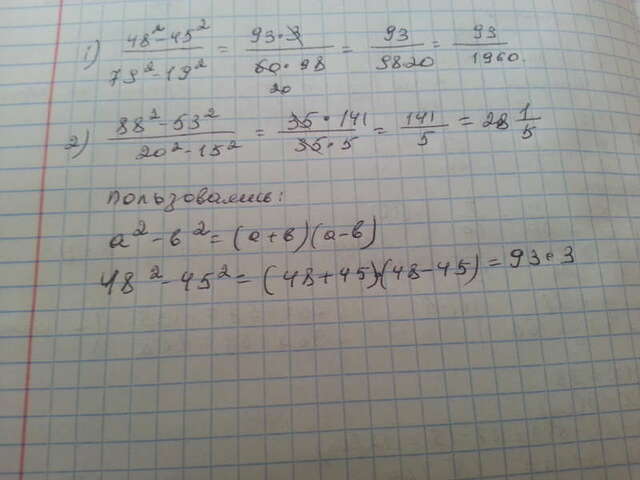 1) (48² - 45²) / (79² - 19²) = (93 · 3) / (60 · 98) = 93 / (9820) = 93 / 1960.
20
2) (88² - 53²) / (20² - 15²) = (35 · 141) / (35 · 5) = 141 / 5 = 28 1/5
Пользовались:
a² - b² = (a + b)(a - b)
48² - 45² = (48 + 45)(48 - 45) = 93 · 3